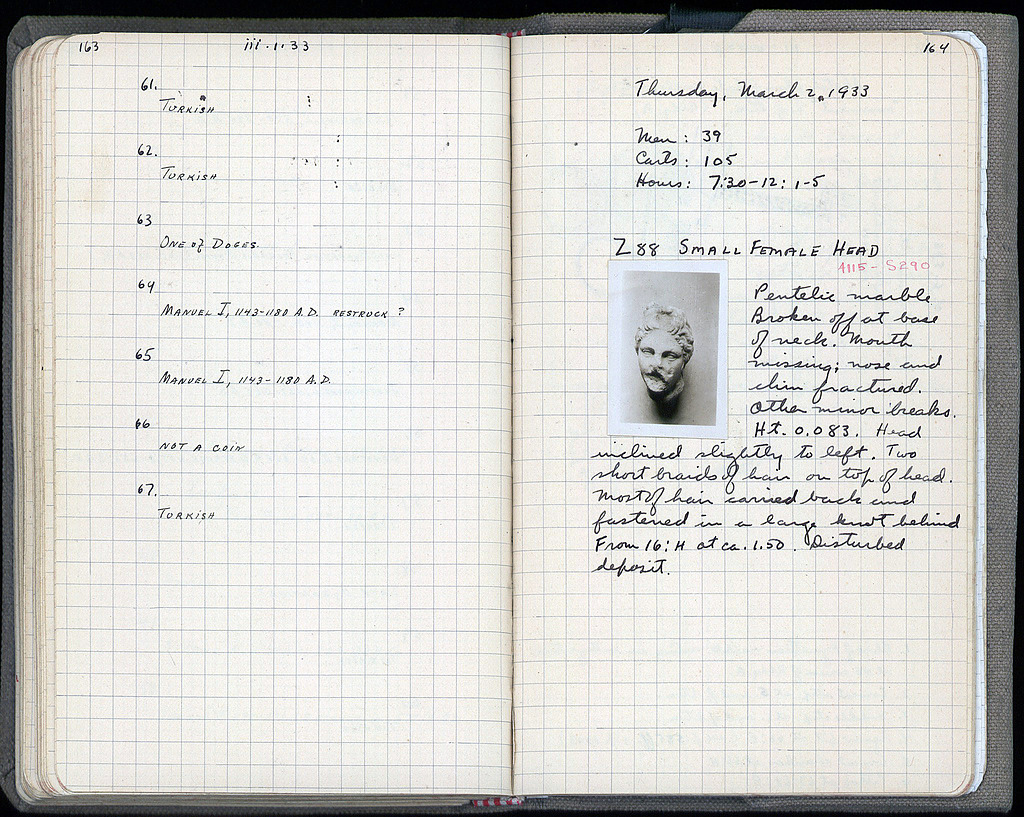 163
iii.1.33
61.
TURKISH
62.
TURKISH
63
ONE OF DOGES.
64
MANUEL I, 1143-1180 A.D. RESTRUCK ?
65
MANUEL I, 1143-1180 A.D.
66
NOT A COIN
67.
TURKISH
164
Thursday, March 2, 1933
Men: 39
Carts: 105
Hours: 7:30-12: 1-5
Z 88 SMALL FEMALE HEAD
A115 - S290
Pentelic marble
Broken off at base
of neck. Mouth
missing; nose and
chin fractured.
Other minor breaks.
Ht. 0.083. Head
inclined slightly to left. Two
short braids of hair on top of head.
Most of hair carried back and
fastened in a large knot behind
From 16:H at ca. 1.50. Disturbed
deposit.